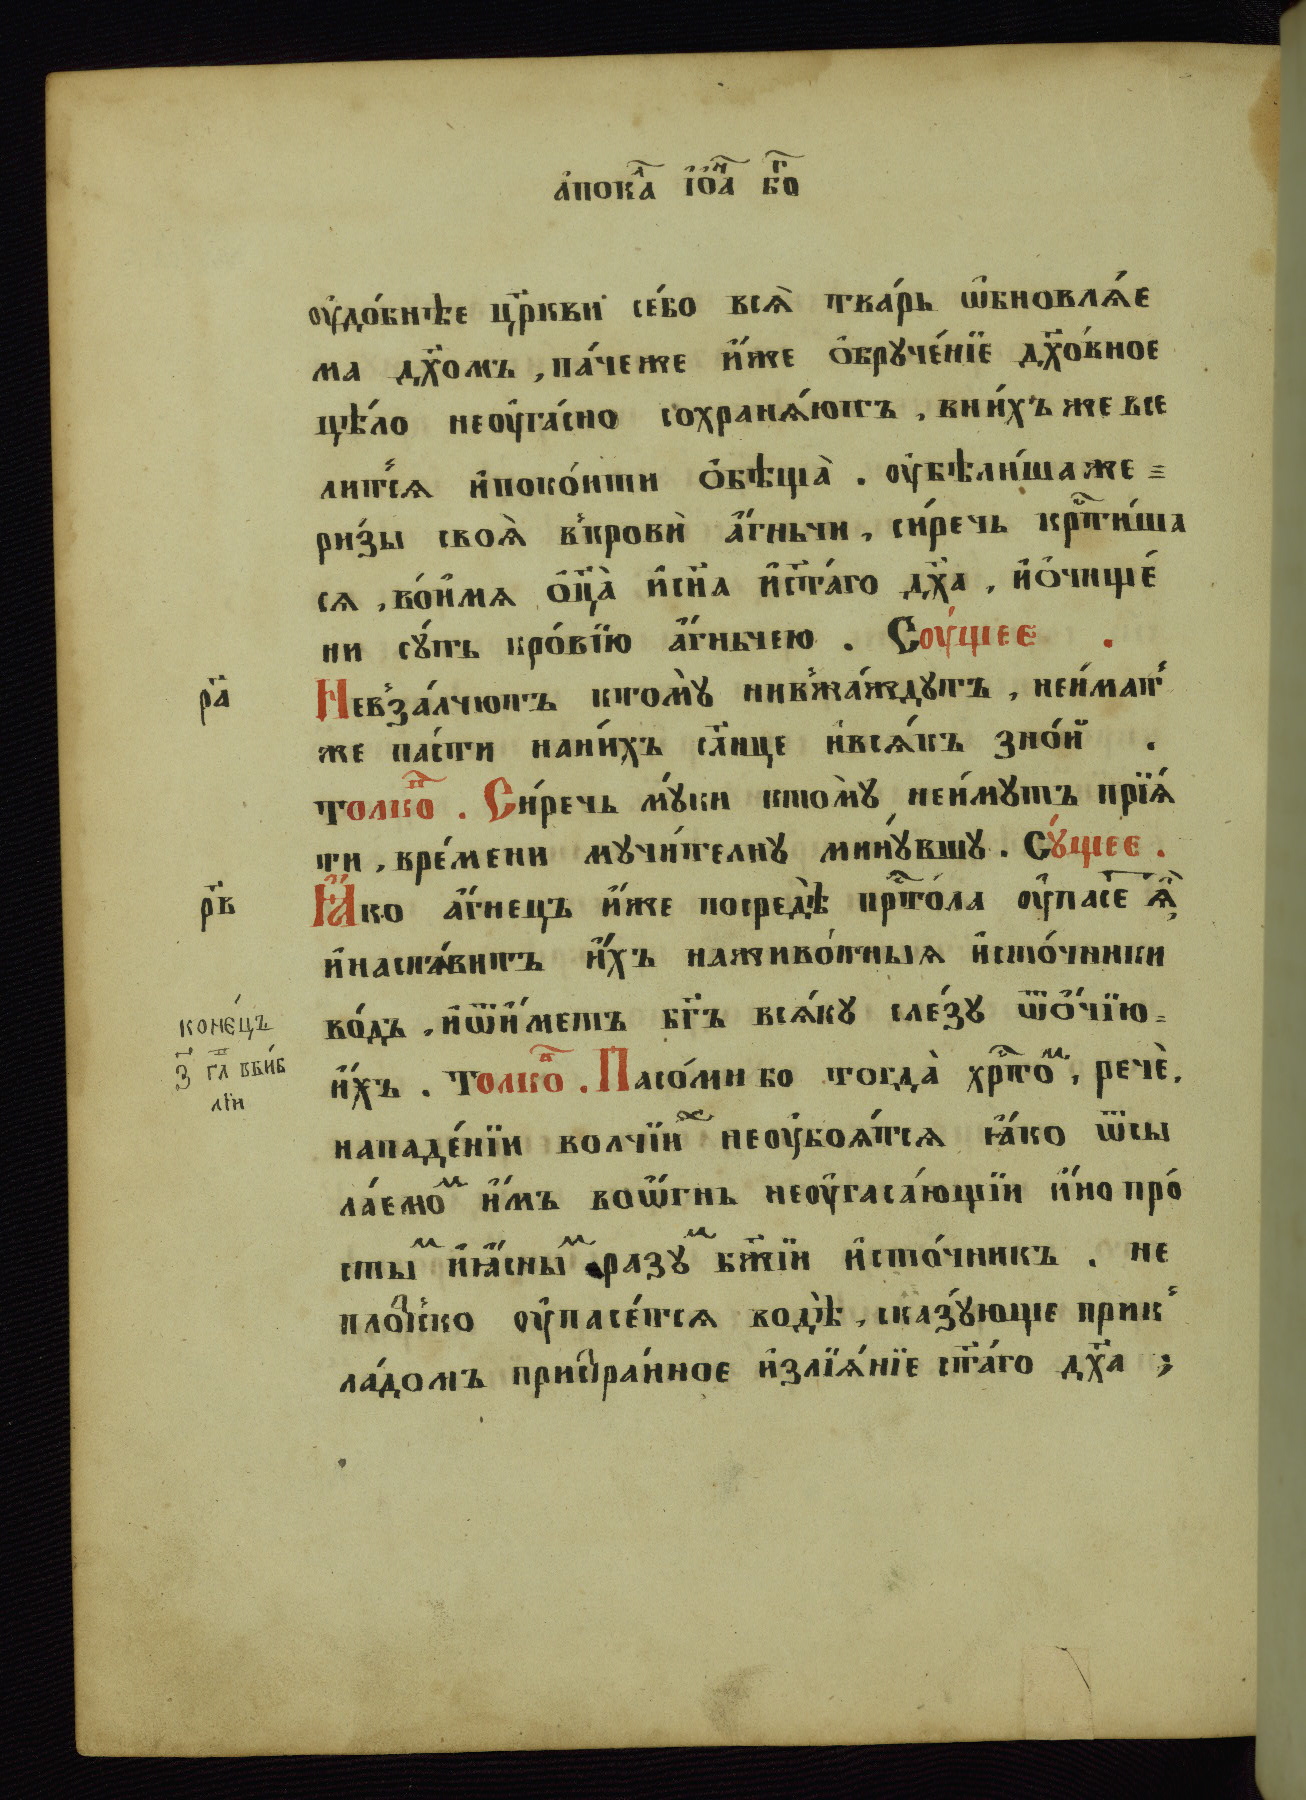 а҆пока́л҃ і҆ѡ҆а́н҃ бг҃о
оу҆до́бнѣе цр҃кви се́бо всѧ̀ тва́рь ѡ҆бновлѧ́е
ма дх҃омъ , па́чеже и҆́же ѻ҆бруче́нїе дх҃о́вное
цѣ́ло неоу҆га́сно сохранѧ́ютъ , вни́хъ же все
ли́тсѧ и҆поко́ити ѻ҆бѣща̀ . оу҆бѣли́шаже =
ри́зы своѧ̀ вкровѝ а҆́гньчи , си́речь кр҃ти́ша
сѧ , во́и҆мѧ ѻ҆ц҃а̀ и҆сн҃а и҆ст҃а́го дх҃а , и҆ѻ҆чище́
ни су́ть кро́вїю а҆́гньчею . Соу́щее .
ра҃ Невза́лчютъ ктому̀ нивжа́ждутъ , неи́мат
же па́сти нани́хъ сл҃нце и҆всѧ́къ зно́й .
толко́в҃ . Си́речь му́ки ктому̀ неи́мутъ прїѧ́
ти , вре́мени мучи́телну мину́вшу . Су́щее .
рв҃ Ꙗ҆́ко а҆́гнецъ и҆́же посредѣ̀ пр҃то́ла оу҆пасе́т ѧ҆̀ ,
и҆наста́витъ и҆́хъ наживо́тныѧ и҆сто́чники
во́дъ , и҆ѿи҆́метъ бг҃ъ всѧ́ку сле́зу ѿѻ҆́чїю =
и҆́хъ . толко́в҃ . Пасо́ми бо тогда̀ хр҃то́м , речѐ .
нападе́нїи волчїи́х неоу҆боѧ́тсѧ ꙗ҆́ко ѿсы
ла́емом и҆́мъ воѡ҆́гнь неоу҆гаса́ющїи и҆́но про́
сты́м и҆ꙗ҆́сны́м разу́м бж҃їи и҆сто́чникъ . не
пло́дско оу҆пасе́тсѧ водѣ̀ , сказу́юще прик
ла́домъ приѻбра́нное и҆злїѧ́нїе ст҃а́го дх҃а ;
коне́цъ
з҃ гл҃ вби́б
лїи